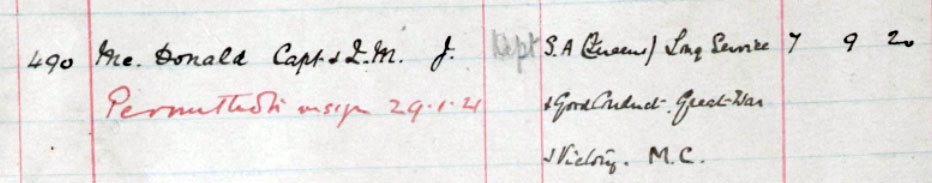 490 Mc. Donald Capt & Q.M. J. Dept S.A (Queens) Long Service 7 9 20
Permitted to resign 29.1.21 & Good Conduct. Great War
& Victory. M.C.